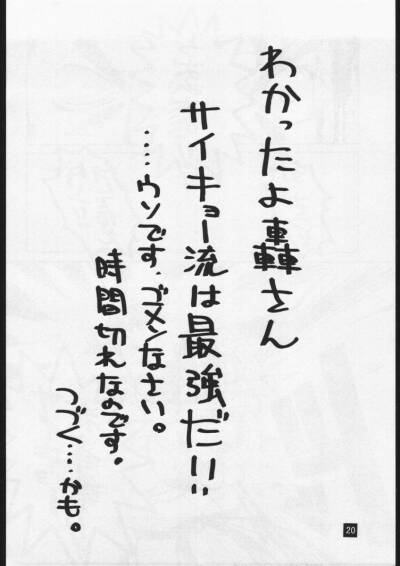 わかったよ轟さん
サイキョー流は最強だ!!
‥‥ウソです、ゴメンなさい。
時間切れなのです。
つづく‥‥かも。
20